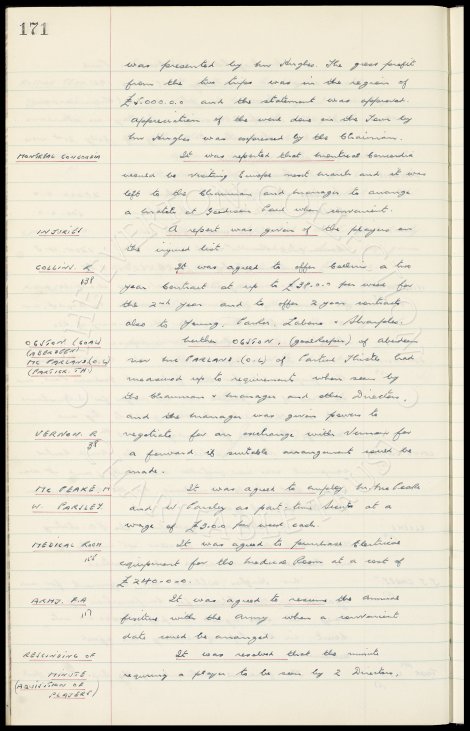 171
was presented by Mr Hughes. The gross profit
from the two trips was in the region of
£5.000.0.0 and the statement was approved.
Appreciation of the work done on the Tour by
Mr Hughes was expressed by the Chairman.
MONTREAL CONCORDIA
It was reported that Montreal Concordia
would be visiting Europe next month and it was
left to the Chairman and Manager to arrange
a match at Goodison Park when convenient.
INJURIES
A report was given of the players on
the injured list
COLLINS. R
138
It was agreed to offer Collins a two
year contract at up to £38.0.0 per week for
the 2nd year and to offer 2 year contracts
also to Young, Parker, Labone &
OGSTON (GOAL)
(ABERDEEN)
MC PARLAND (O.L)
(PARTICK. TH)
Neither OGSTON, (goalkeeper) of Aberdeen
nor Mc PARLAND. (O.L) of Partick Thistle had
measured up to requirements when seen by
the Chairman & Manager and other Directors,
and the Manager was given powers to
VERNON. R
38
negotiate for an exchange with Vernon for
a forward if suitable arrangement could be
made.
MC PEAKE. M
W. PARSLEY
It was agreed to employ M. Mc Peake
and W. Parsley as part-time Scouts at a
wage of £3.0.0 per week each.
MEDICAL ROOM
It was agreed to purchase Electrical
equipment for the Medical Room at a cost of
£240-0-0.
ARMY. F.A
117
It was agreed to resume the annual
fixture with the Army when a convenient
date could be arranged.
RESCINDING OF
MINUTE
(AQUISITION OF
PLAYERS)
It was resolved that the minute
requiring a player to be seen by 2 Directors,